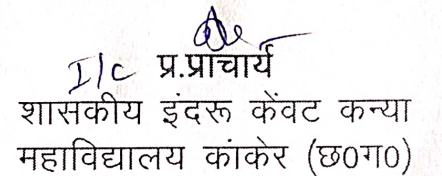 I/c प्र.प्राचार्य
शासकीय इंदरू केंवट कन्या
महाविद्यालय कांकेर (छ0ग0)